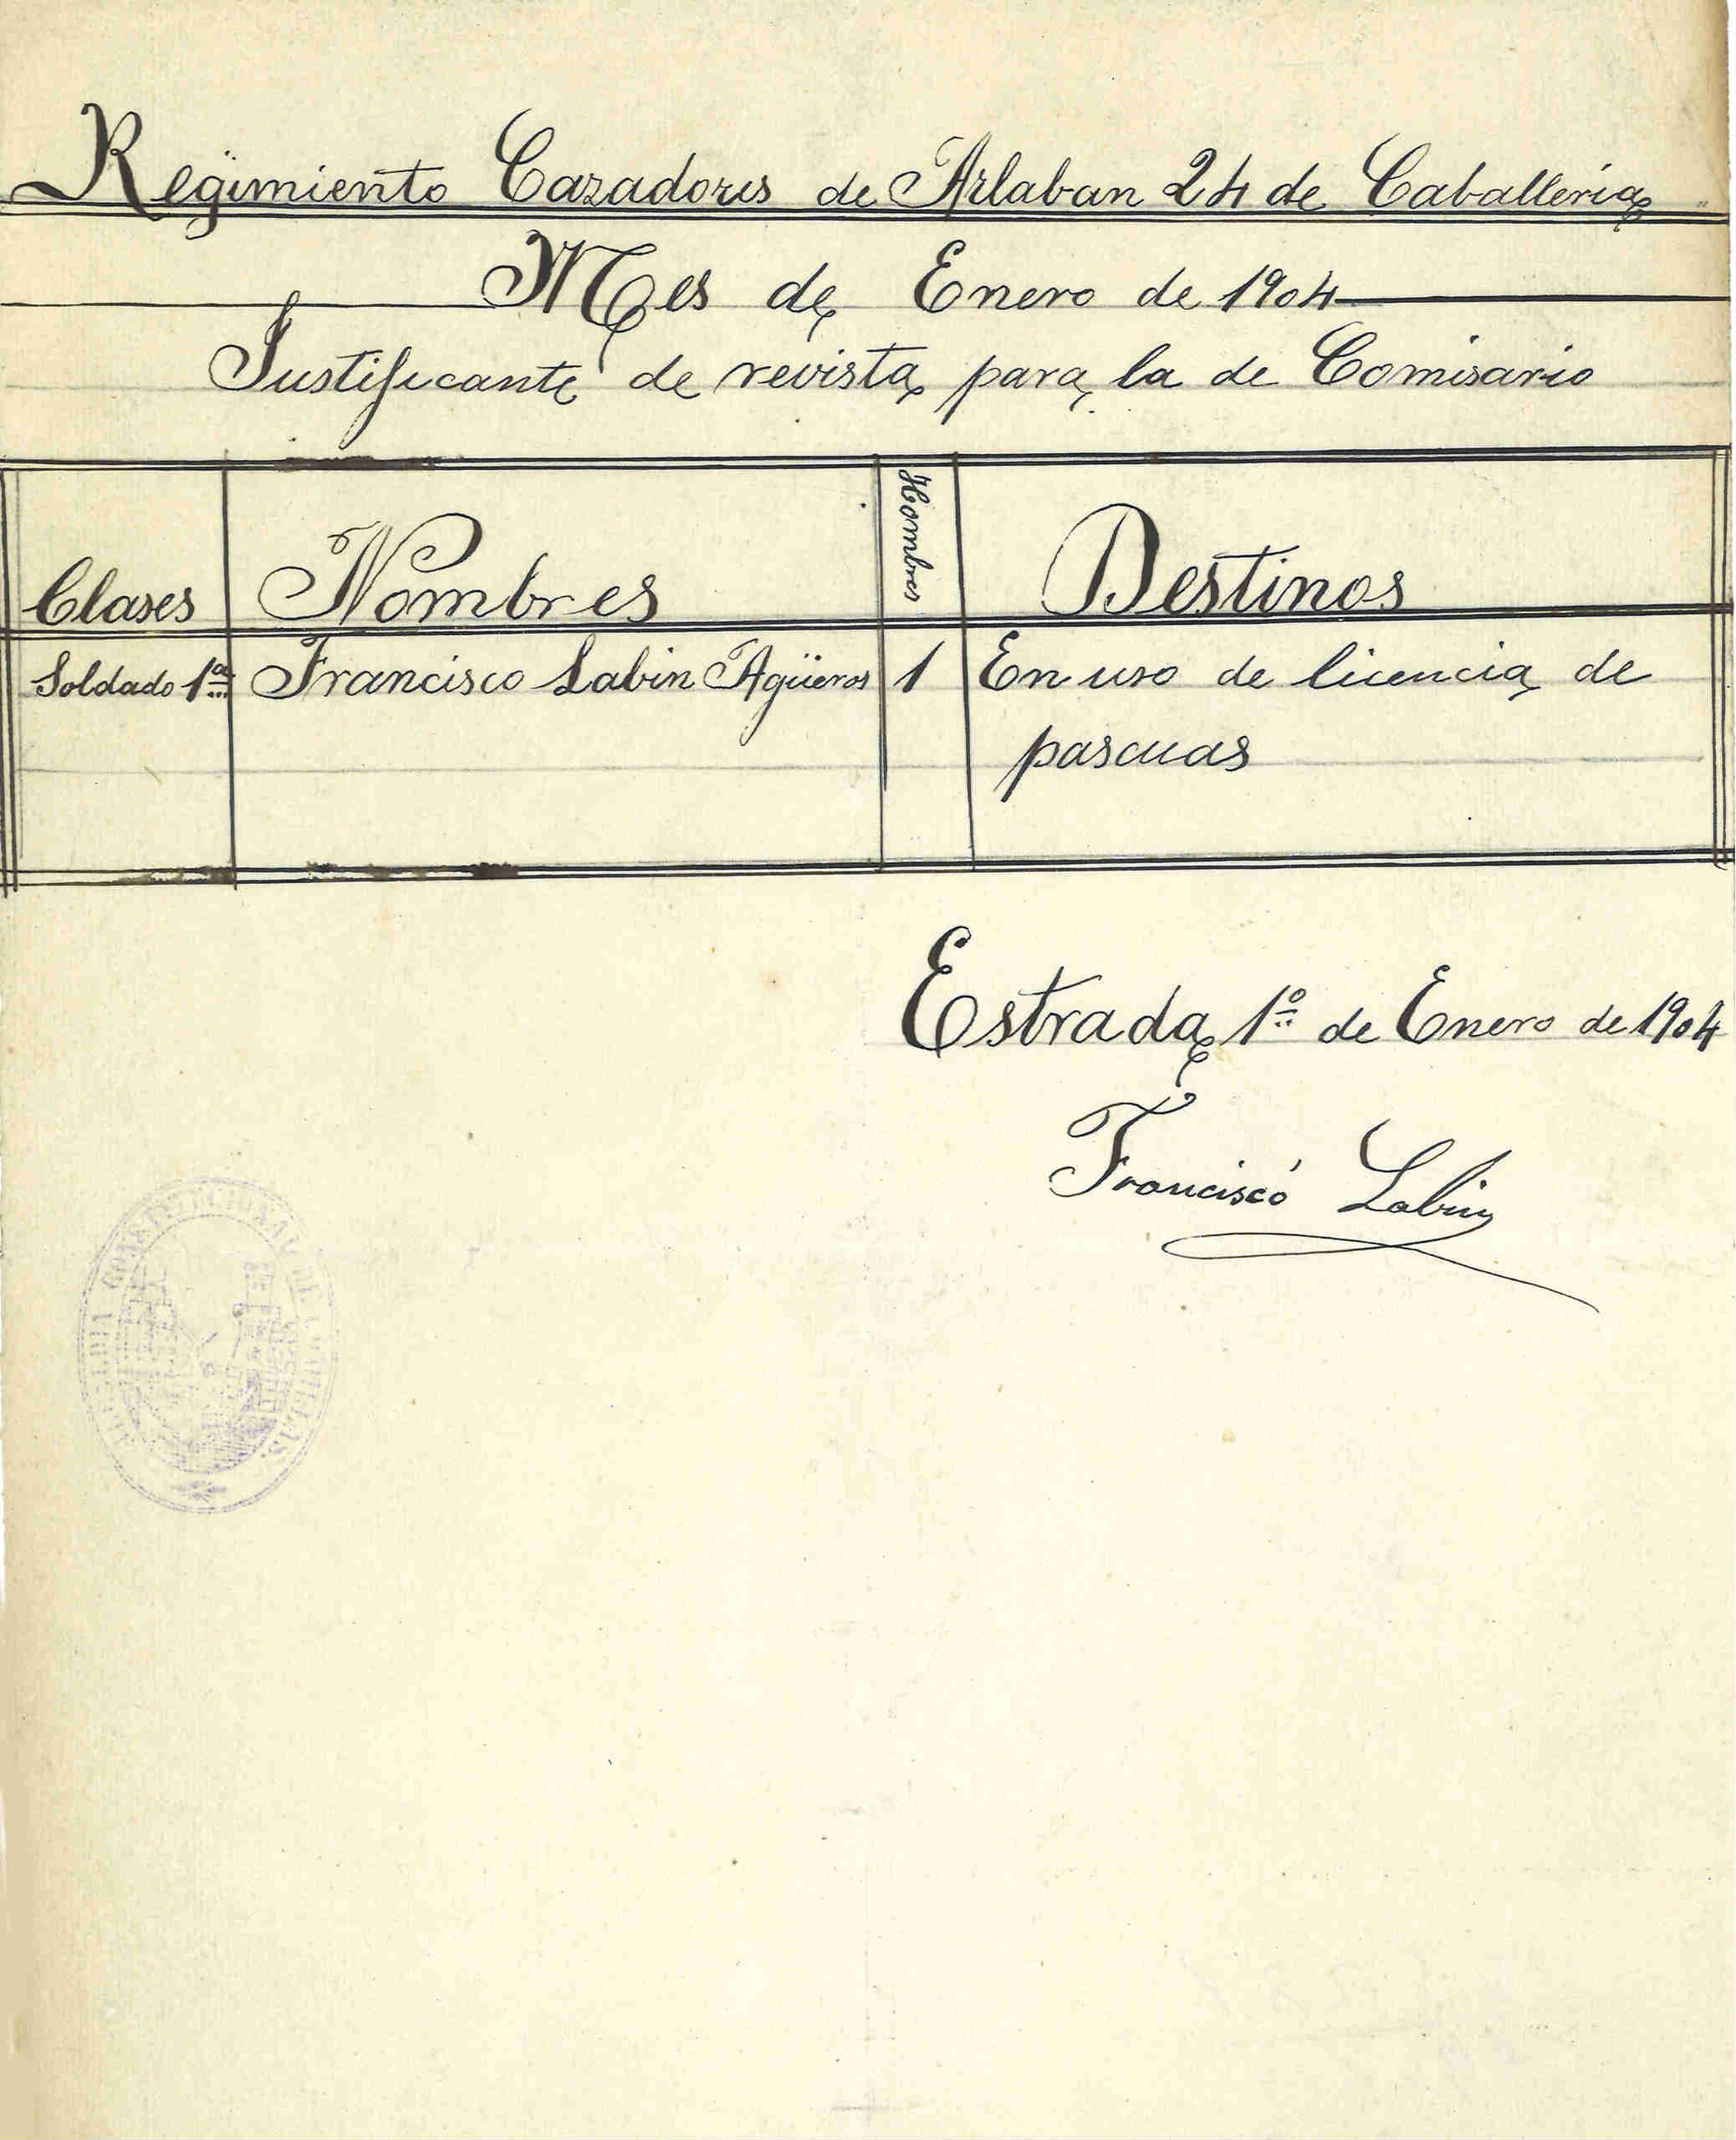 Regimiento Cazadores de Arlaban 24 de Caballeria
Mes de Enero de 1904
Justificante de revista para la de Comisario
Clases Nombres Hombres Destinos
Soldado 1ª Francisco Labin Agüeros 1 En uso de licencia de
pascuas
Estrada 1º de Enero de 1904
Francisco Labin
ALCALDIA CONSTITUCIONAL DE